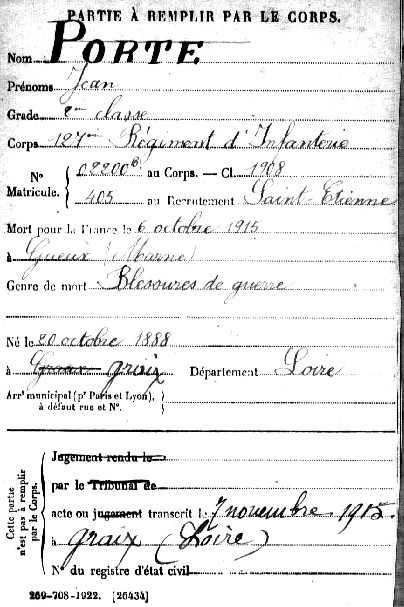 PARTIE À REMPLIR PAR LE CORPS.
Nom PORTE
Prénoms Jean
Grade 2me classe
Corps 127me Régiment d'Infanterie
N° Matricule. { 02200b au Corps. — Cl. 1908
405 au Recrutement Saint-Etienne
Mort pour la France le 6 octobre 1915
à Gueux (Marne)
Genre de mort Blessures de guerre
Né le 20 octobre 1888
à Graix Département Loire
Arrt municipal (pr Paris et Lyon), à défaut rue et N°. {
Cette partie n'est pas à remplir par le Corps.
Jugement rendu le
par le Tribunal de
acte ou jugement transcrit le 7 novembre 1915.
à Graix (Loire)
N° du registre d'état civil
269-708-1922. [26434]